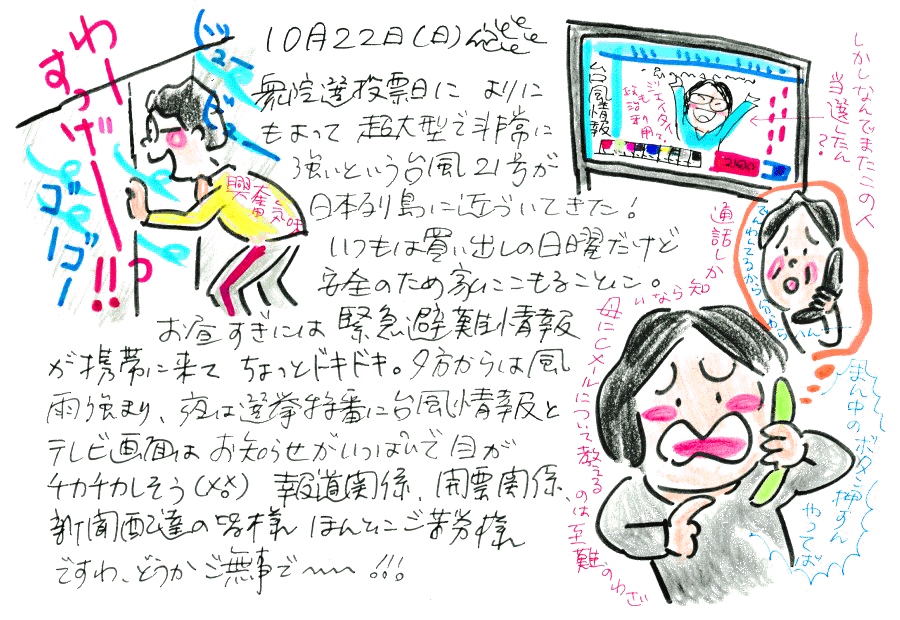 10月22日(日)
衆院選投票日に よりに
もよって 超大型で非常に
強いという台風21号が
日本列島に近づいてきた!
いつもは買い出しの日曜だけど
安全のため家にこもることに。
お昼すぎには 緊急避難情報
が携帯に来て ちょっとドキドキ。夕方からは風
雨強まり、夜は選挙特番に台風情報と
テレビ画面は お知らせがいっぱいで 目が
チカチカしそう(××) 報道関係、
新聞配達の皆様 ほんとにご苦労様
ですわ、どうかご無事で〜〜!!!
わー
すっげー!!
ビュービュー
ゴーゴー
興奮気味
台風情報
政治利用
2100
しかしなんでまたこの人
当選したん?
でんわしてるからわからへん
通話しか知らない
母にCメールについて教える
のは至難のわざ
まん中の
ボタン押すん
やってば